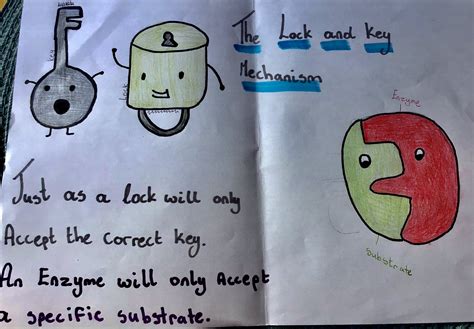 The Lock and Key
Mechanism
key
Lock
Enzyme
Substrate
Just as a lock will only
Accept the correct key.
An Enzyme will only Accept
a specific substrate.